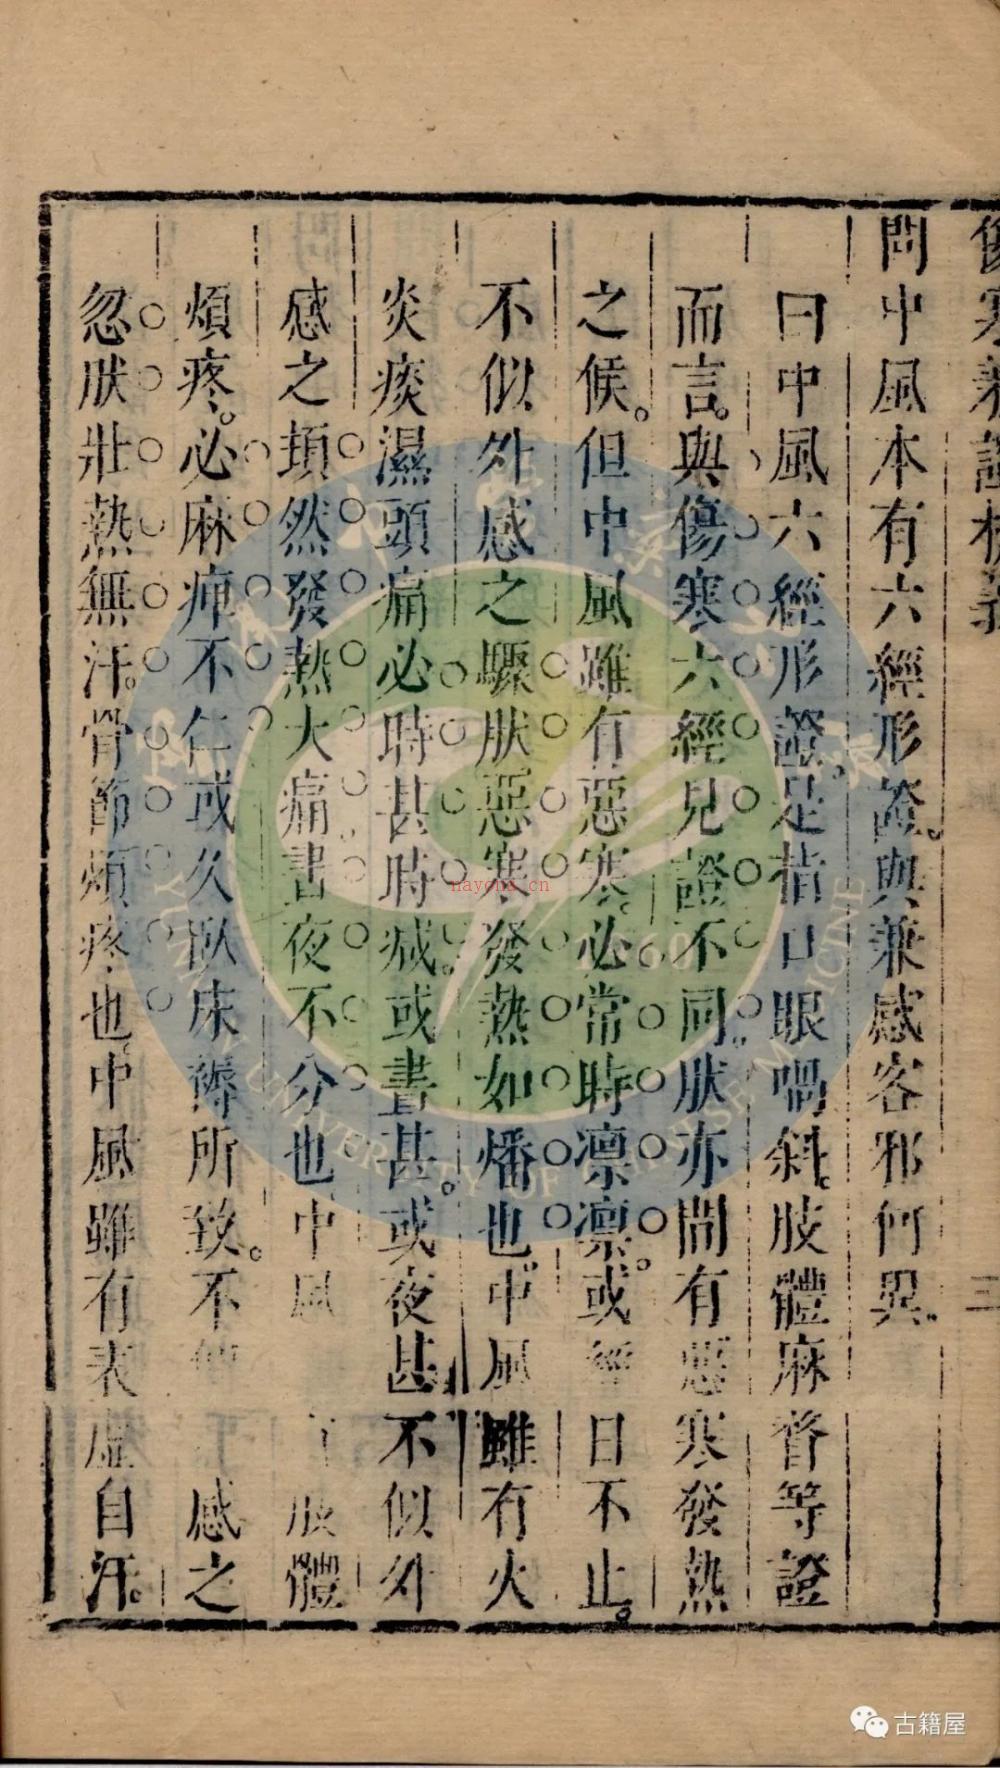 傷寒兼證析義
三
問中風本有六經形證與兼感客邪何異
曰中風六經形證是指口眼喎斜肢體麻瞀等證
而言與傷寒六經見證不同肰亦問有惡寒發熱
之候但中風雖有惡寒必常時凛凛或經日不止
不似外感之驟肰惡寒發熱如燔也中風雖有火
炎痰濕頭痛必時甚時減或晝甚或夜甚不似外
感之頃然發熱大痛晝夜不分也中風 肢體
煩疼必麻痺不仁或久臥床褥所致不 感之
忽肰壯熱無汗骨節煩疼也中風雖有表虛自汗
nayona.cn
UNIVERSITY OF CHINESE MEDICINE
古籍屋